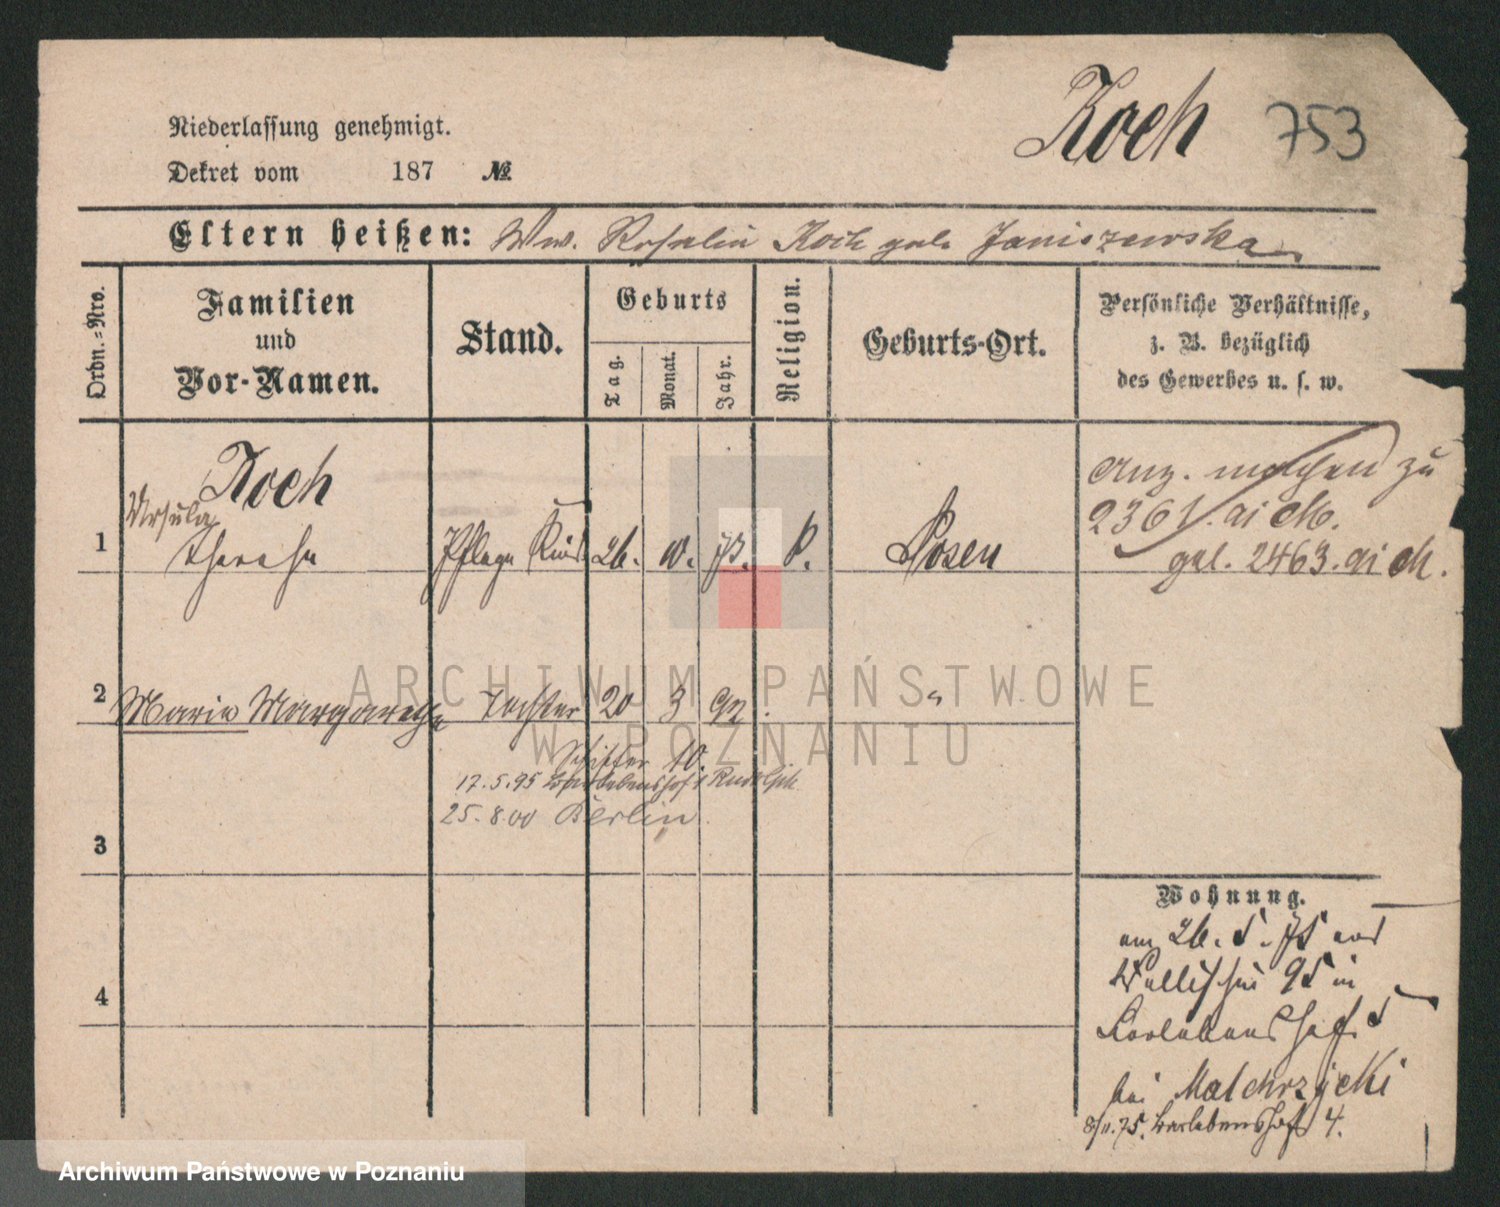 Koch 753
Niederlassung genehmigt.
Dekret vom 187 №
Eltern heißen: Ww. Rosalie Koch geb. Janiszewska
Ordn.-Nro.
Familien
und
Vor-Namen.
Stand.
Geburts
Tag.
Monat.
Jahr.
Religion.
Geburts-Ort.
Persönliche Verhältnisse,
z. B. bezüglich
des Gewerbes u. s. w.
Koch
Ursula
1 Therese Pflege Kind 26. 10. 73. k. Posen
2361. ai
gel. 2463. ai
2 Marie Margarethe Tochter 20 3 92. "
10.
17.5.95 Berlebenshof Rudolph
25.8.00 Berlin.
3
4
Wohnung.
am 26. 5. 75 von
Wallischei 95 in
Berlebenshof 5
bei Malchrzycki
8/11.75. Berlebenshof 4.
ARCHIWUM PAŃSTWOWE
W POZNANIU
Archiwum Państwowe w Poznaniu